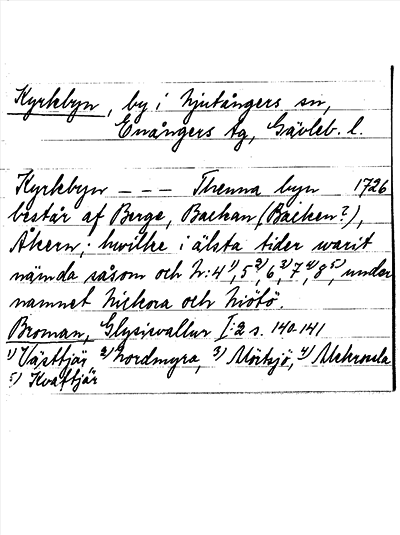 Kyrkbyn, by i Njutångers sn,
Enångers tg, Gävleb. l.
Kyrkbyn — — — Thenna byn 1726
består af Berge, Backan (Backen?),
Åkern; hwilke i älsta tider warit
nämda såsom och N:4 1), 5 2), 6 3), 7 4), 8 5), under
namnet Nickora och Niötö.
Broman, Glysisvallur I:2 s. 140-141
1) Västtjär 2) Nordmyra, 3) Mörtsjö,
5) Kvarntjär